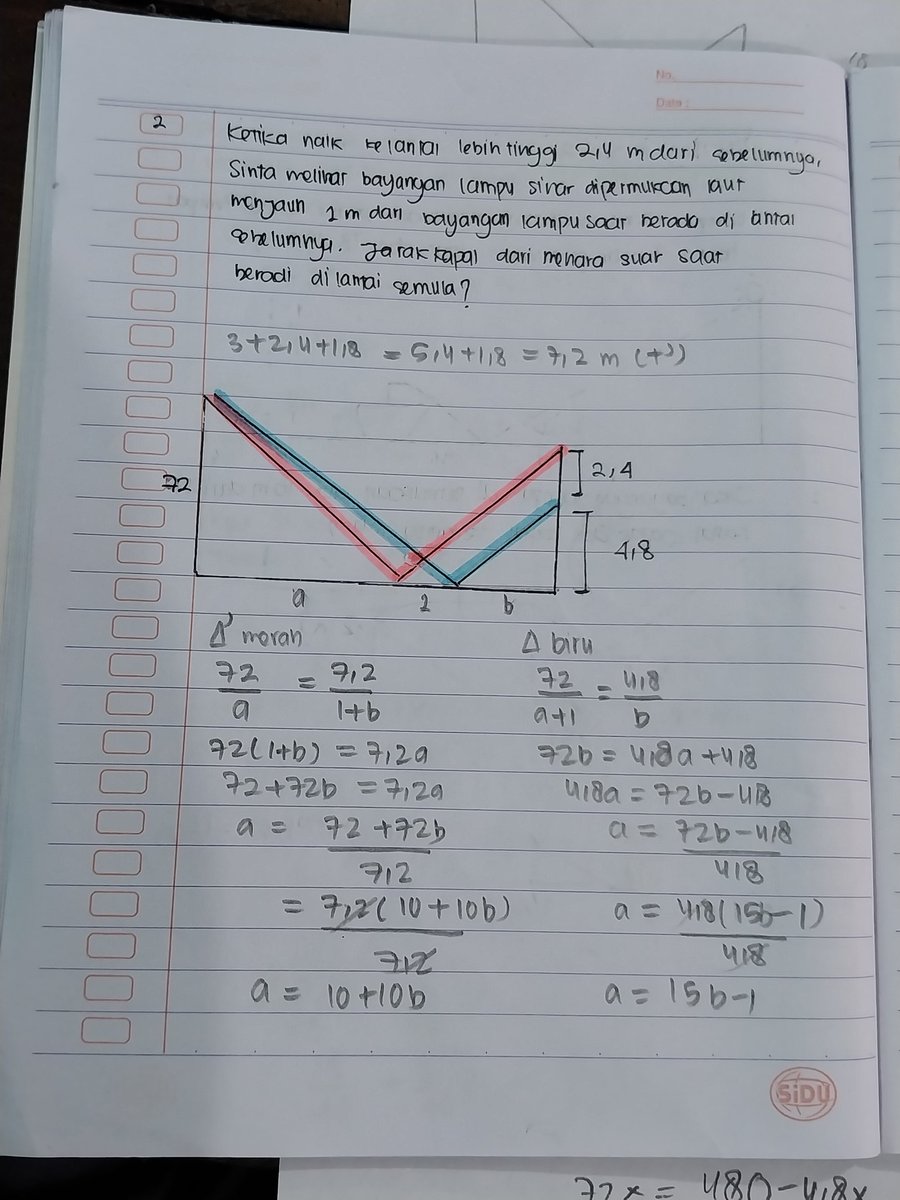 No.
Date :
2
Ketika naik ke lantai lebih tinggi 2,4 m dari sebelumnya,
Sinta melihat bayangan lampu sinar dipermukaan laut
menjauh 1 m dari bayangan lampu saat berada di lantai
sebelumnya. Jarak kapal dari menara suar saat
beradi di lantai semula?
3+2,4+1,8 = 5,4+1,8 = 7,2 m (t³)
72
2,4
4,8
a 1 b
Δ merah Δ biru
72/a = 7,2/1+b 72/a+1 = 4,8/b
72(1+b) = 7,2a 72b = 4,8a+4,8
72+72b = 7,2a 4,8a = 72b-4,8
a = 72+72b/7,2 a = 72b-4,8/4,8
= 7,2(10+10b)/7,2 a = 4,8(15b-1)/4,8
a = 10+10b a = 15b-1
SiDU
72x = 480-4,8x